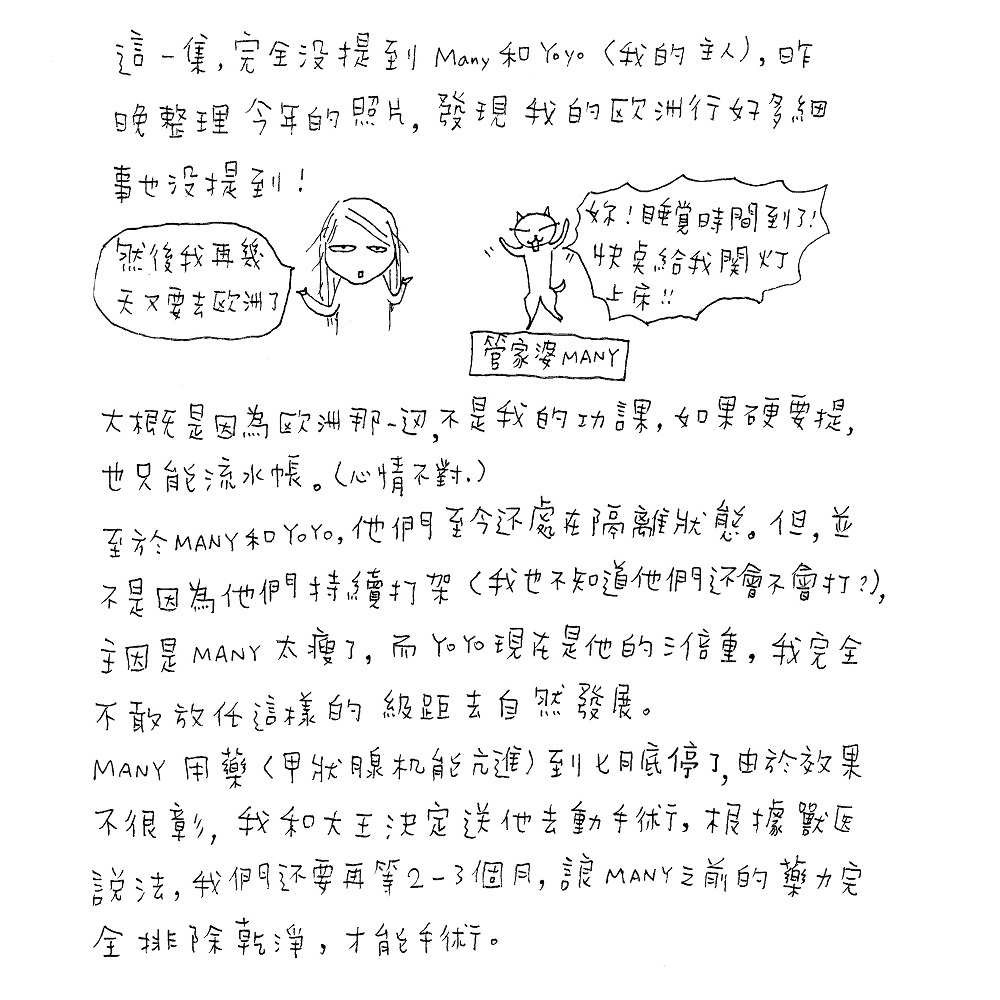 這一集,完全沒提到Many和Yoyo(我的主人),昨
晚整理今年的照片,發現我的歐洲行好多細
事也沒提到!
然後我再幾
天又要去歐洲了
妳!睡覺時間到了!
快桌給我関灯
上床!!
管家婆MANY
大概是因為歐洲那一迈,不是我的功課,如果硬要提,
也只能流水帳。(心情不對.)
至於MANY和YOYO,他們至今还處在隔離狀態。但,並
不是因為他們持續打架(我也不知道他們还會不會打?),
主因是MANY太瘦了,而YOYO現在是他的三倍重,我完全
不敢放任這樣的級距去自然發展。
MANY用藥(甲狀腺机能亢進)到七月底停了,由於效果
不很彰,我和大王決定送他去動手術行。根據獸医
說法,我們还要再等2-3個月,讓MANY之前的藥力完
全排除乾淨,才能手術。